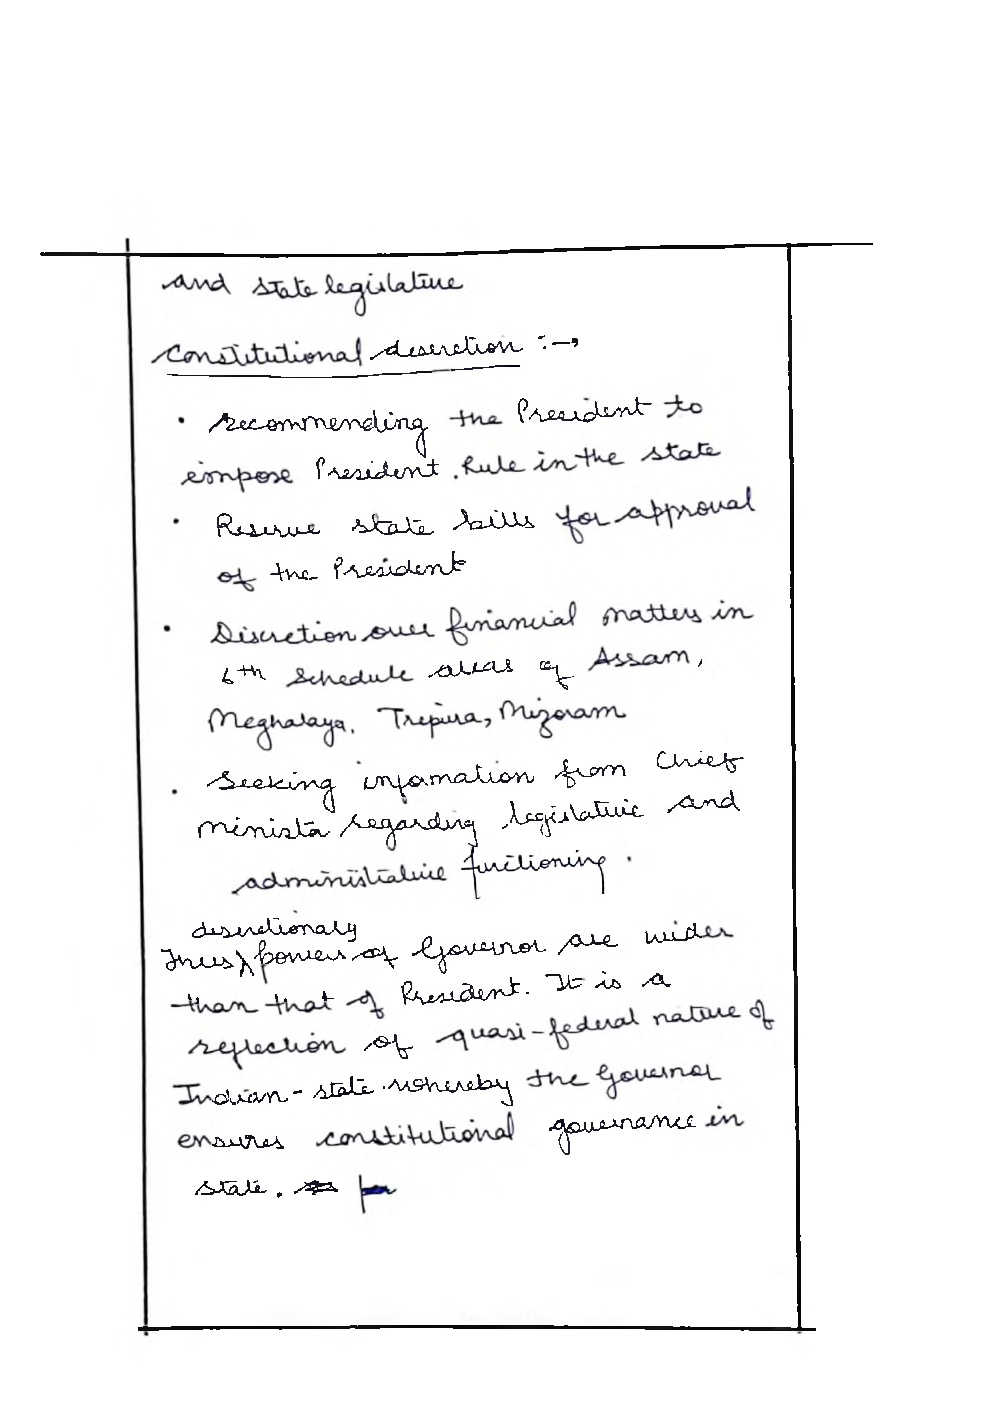 and state legislature
Constitutional descretion :-,
• recommending the President to
impose President. Rule in the state
• Reserve state bills for approval
of the President
• Discretion over financial matters in
6th Schedule areas of Assam,
Meghalaya, Tripura, Mizoram
• Seeking information from Chief
minister regarding legislative and
administrative functioning.
descretionary
Thus powers of Governor are wider
than that of President. It is a
reflection of quasi-federal nature of
Indian-state whereby the Governor
ensures constitutional governance in
state.